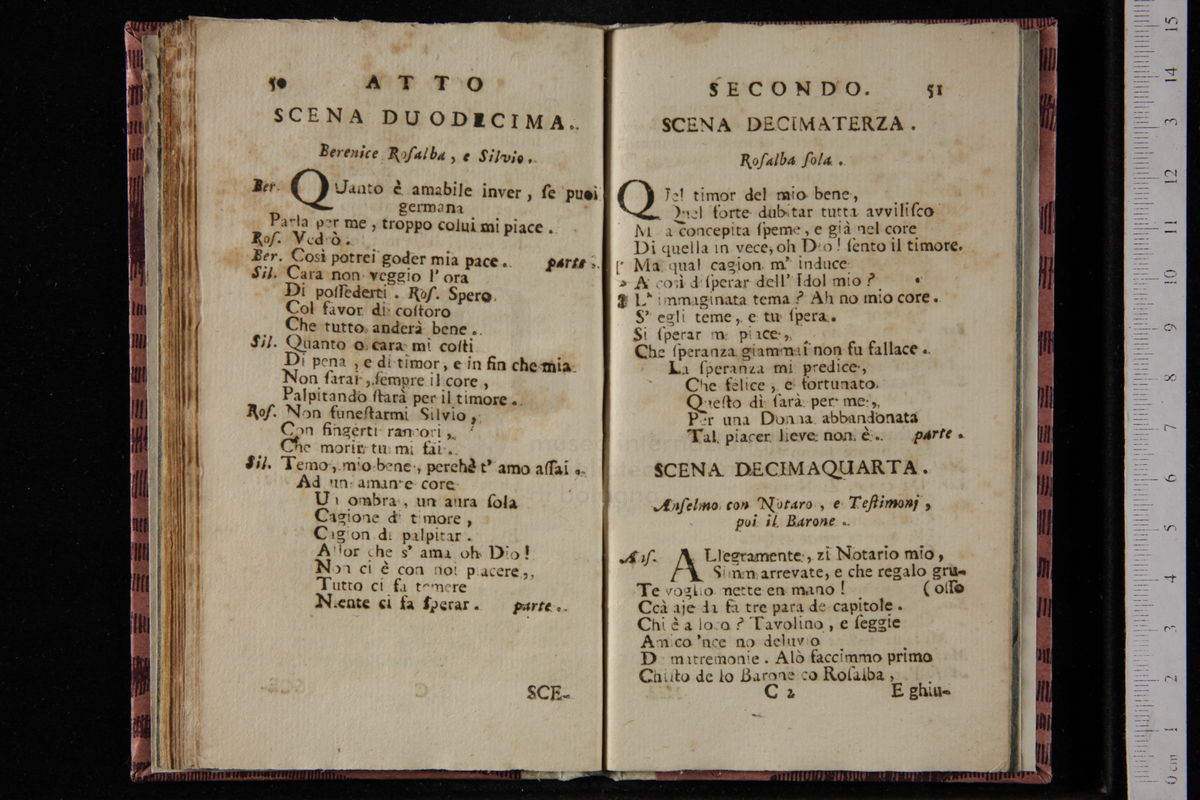 50 ATTO
SCENA DUODECIMA.
Berenice Roſalba, e Silvio.
Ber. QUanto è amabile inver, ſe puoi
germana
Parla per me, troppo colui mi piace.
Roſ. Vedrò.
Ber. Così potrei goder mia pace. parte.
Sil. Cara non veggio l' ora
Di poſſederti. Roſ. Spero
Col favor di coſtoro
Che tutto anderà bene.
Sil. Quanto o cara mi coſti
Di pena, e di timor, e in fin che mia
Non ſarai, ſempre il core,
Palpitando ſtarà per il timore.
Roſ. Non funeſtarmi Silvio,
Con fingerti rancori,
Che morir tu mi fai.
Sil. Temo, mio bene, perchè t' amo aſſai.
Ad un amante core
Un ombra, un aura ſola
Cagione di timore,
Cagion di palpitar.
Allor che s' ama oh Dio!
Non ci è con noi piacere,
Tutto ci fa temere
Niente ci fa ſperar. parte.
SCE-
SECONDO. 51
SCENA DECIMATERZA.
Roſalba ſola.
QUel timor del mio bene,
Quel forte dubitar tutta avviliſco
Mia concepita ſpeme, e già nel core
Di quella in vece, oh Dio! ſento il timore.
Ma qual cagion m' induce
A così diſperar dell' Idol mio?
L' immaginata tema? Ah no mio core.
S' egli teme, e tu ſpera.
Si ſperar mi piace,
Che ſperanza giammai non fu fallace.
La ſperanza mi predice,
Che felice, e fortunato
Queſto dì ſarà per me,
Per una Donna abbandonata
Tal piacer lieve non è. parte.
SCENA DECIMAQUARTA.
Anſelmo con Notaro, e Teſtimonj,
poi il Barone.
Anſ. ALlegramente, zi Notario mio,
Simm arrevate, e che regalo gru-
Te voglio mette en mano! (oſſo
Ccà aje da fà tre para de capitole.
Chi è a loco? Tavolino, e ſeggie
Amico 'nce no deluvio
De matremonie. Alò faccimmo primo
Chiſto de lo Barone co Roſalba,
C 2 E ghiu-